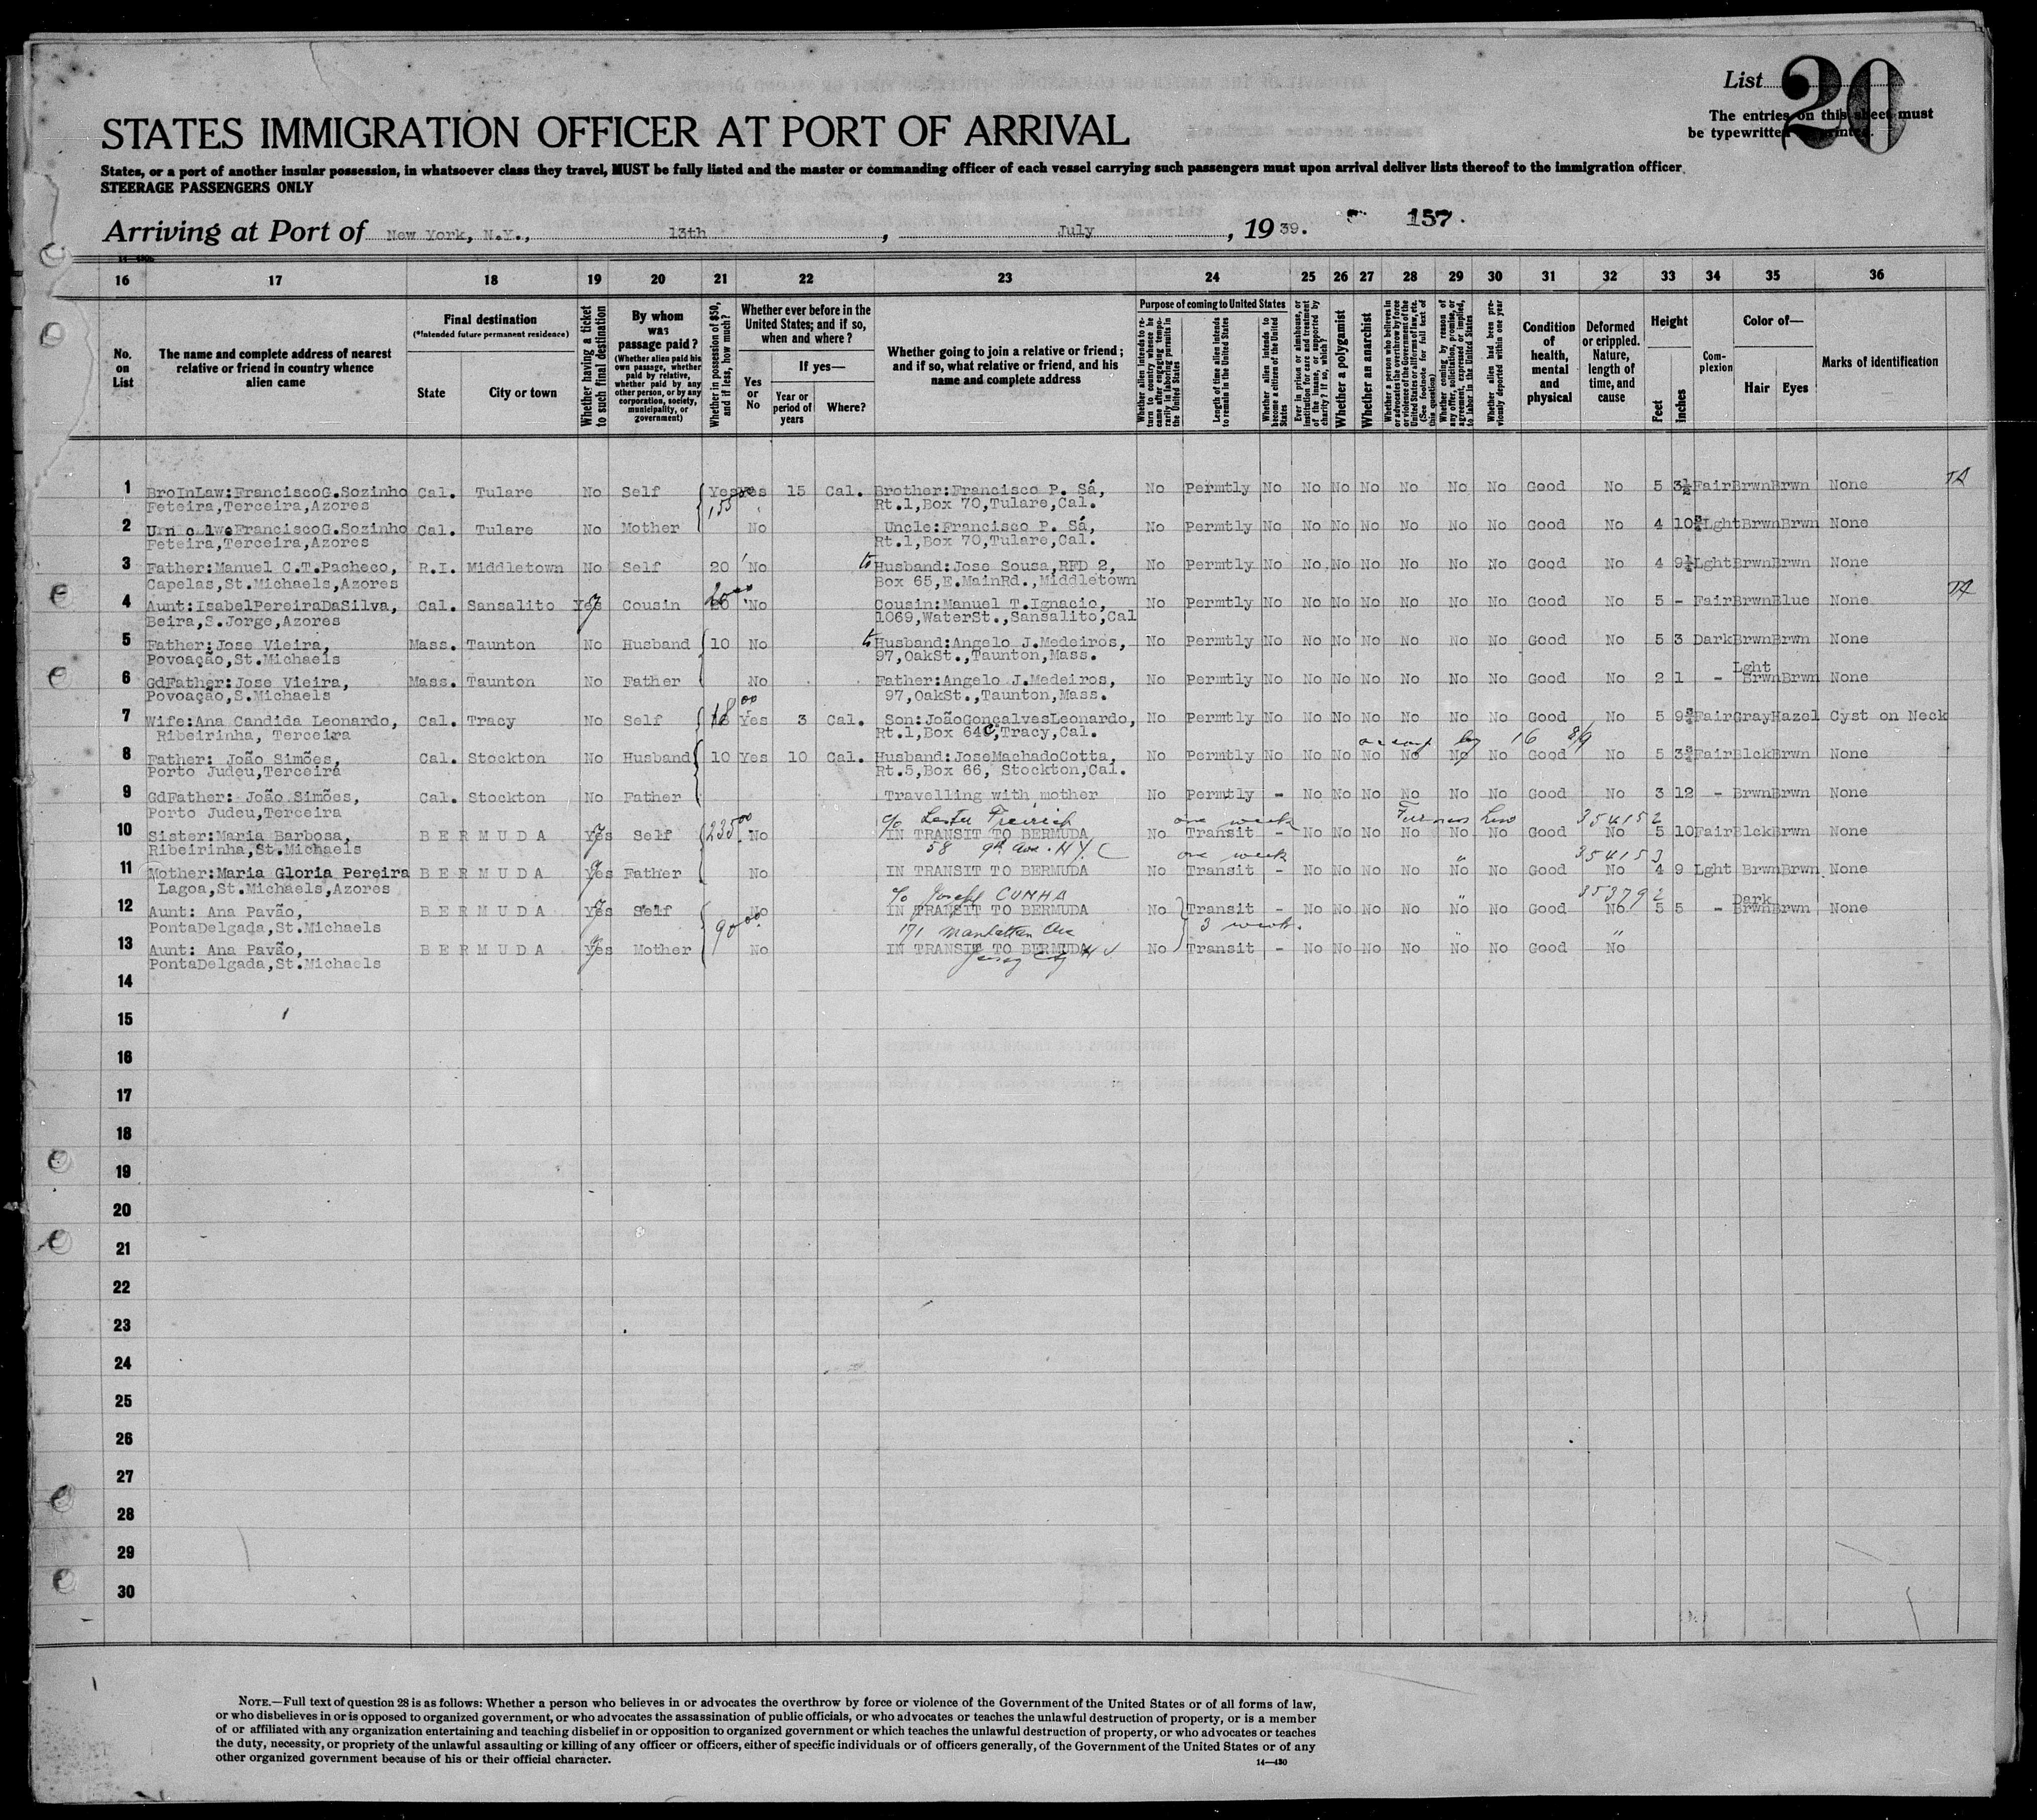 List 20
The entries on this sheet must
be typewritten or printed.
STATES IMMIGRATION OFFICER AT PORT OF ARRIVAL
States, or a port of another insular possession, in whatsoever class they travel, MUST be fully listed and the master or commanding officer of each vessel carrying such passengers must upon arrival deliver lists thereof to the immigration officer
STEERAGE PASSENGERS ONLY
Arriving at Port of New York, N.Y., 13th , July , 19 39. 157.
16 17 18 19 20 21 22 23 24 25 26 27 28 29 30 31 32 33 34 35 36
No. on List
The name and complete address of nearest relative or friend in country whence alien came
Final destination
(*Intended future permanent residence)
State
City or town
Whether having a ticket to such final destination
By whom was passage paid?
(Whether alien paid his own passage, whether paid by relative, whether paid by any other person, or by any corporation, society, municipality, or government)
Whether in possession of $50, and if less, how much?
Whether ever before in the United States; and if so, when and where?
Yes or No
If yes—
Year or period of years
Where?
Whether going to join a relative or friend; and if so, what relative or friend, and his name and complete address
Purpose of coming to United States
Whether alien intends to return to country whence he came after engaging temporarily in laboring pursuits in the United States
Length of time alien intends to remain in the United States
Whether alien intends to become a citizen of the United States
Ever in prison or almshouse, or institution for care and treatment of the insane, or supported by charity? If so, which?
Whether a polygamist
Whether an anarchist
Whether a person who believes in or advocates the overthrow by force or violence of the Government of the United States or all forms of law, etc. (See footnote for full text of this question)
Whether coming by reason of any offer, solicitation, promise, or agreement, expressed or implied, to labor in the United States
Whether alien had been previously deported within one year
Condition of health, mental and physical
Deformed or crippled. Nature, length of time, and cause
Height
Feet
Inches
Complexion
Color of—
Hair
Eyes
Marks of identification
1 BroInLaw:FranciscoG.Sozinho Cal. Tulare No Self Yes Yes 15 Cal. Brother:Francisco P. Sá, No Permtly No No No No No No No Good No 5 3½ Fair Brwn Brwn None
Feteira,Terceira,Azores 155 Rt.1,Box 70,Tulare,Cal.
2 FranciscoG.Sozinho Cal. Tulare No Mother No Uncle:Francisco P. Sá, No Permtly No No No No No No No Good No 4 10 Lght Brwn Brwn None
Feteira,Terceira,Azores Rt.1,Box 70,Tulare,Cal.
3 Father:Manuel C.T.Pacheco, R.I. Middletown No Self 20 No to Husband:Jose Sousa,RFD 2, No Permtly No No No No No No No Good No 4 9 Lght Brwn Brwn None
Capelas,St.Michaels,Azores Box 65,E.MainRd.,Middletown
4 Aunt:IsabelPereiraDaSilva, Cal. Sansalito Yes Cousin No Cousin:Manuel T.Ignacio, No Permtly No No No No No No No Good No 5 - Fair Brwn Blue None
Beira,S.Jorge,Azores 1069,WaterSt.,Sansalito,Cal
5 Father:Jose Vieira, Mass. Taunton No Husband 10 No to Husband:Angelo J.Medeiros, No Permtly No No No No No No No Good No 5 3 Dark Brwn Brwn None
Povoação,St.Michaels 97,OakSt.,Taunton,Mass.
6 GdFather:Jose Vieira, Mass. Taunton No Father No Father:Angelo J.Medeiros, No Permtly No No No No No No No Good No 2 1 - Lght Brwn Brwn None
Povoação,S.Michaels 97,OakSt.,Taunton,Mass.
7 Wife:Ana Candida Leonardo, Cal. Tracy No Self 18 00 Yes 3 Cal. Son:JoãoGonçalvesLeonardo, No Permtly No No No No No No No Good No 5 9 Fair Gray Hazel Cyst on Neck
Ribeirinha, Terceira Rt.1,Box 64C,Tracy,Cal.
accomp by 16 8/9
8 Father: João Simões, Cal. Stockton No Husband 10 Yes 10 Cal. Husband:JoseMachadoCotta, No Permtly No No No No No No No Good No 5 3 Fair Blck Brwn None
Porto Judeu,Terceira Rt.5,Box 66, Stockton,Cal.
9 GdFather: João Simões, Cal. Stockton No Father Travelling with mother No Permtly - No No No No No No Good No 3 12 - Brwn Brwn None
Porto Judeu,Terceira
c/o one week Furness Line 354152
10 Sister:Maria Barbosa, BERMUDA Yes Self 235 00 No IN TRANSIT TO BERMUDA No Transit - No No No No No No Good No 5 10 Fair Blck Brwn None
Ribeirinha,St.Michaels 58 9th Ave. N.Y.C
one week " 354153
11 Mother:Maria Gloria Pereira BERMUDA Yes Father No IN TRANSIT TO BERMUDA No Transit - No No No No No No Good No 4 9 Lght Brwn Brwn None
Lagoa,St.Michaels,Azores
c/o Joseph CUNHA " 353792
12 Aunt: Ana Pavão, BERMUDA Yes Self 90 00 No IN TRANSIT TO BERMUDA No Transit - No No No No No No Good No 5 5 - Dark Brwn Brwn None
PontaDelgada,St.Michaels 171 Manhattan Ave 3 weeks.
13 Aunt: Ana Pavão, BERMUDA Yes Mother No IN TRANSIT TO BERMUDA No Transit - No No No No No No Good No
PontaDelgada,St.Michaels Jersey City NJ
14
15
16
17
18
19
20
21
22
23
24
25
26
27
28
29
30
NOTE.—Full text of question 28 is as follows: Whether a person who believes in or advocates the overthrow by force or violence of the Government of the United States or of all forms of law,
or who disbelieves in or is opposed to organized government, or who advocates the assassination of public officials, or who advocates or teaches the unlawful destruction of property, or is a member
of or affiliated with any organization entertaining and teaching disbelief in or opposition to organized government or which teaches the unlawful destruction of property, or who advocates or teaches
the duty, necessity, or propriety of the unlawful assaulting or killing of any officer or officers, either of specific individuals or of officers generally, of the Government of the United States or of any
other organized government because of his or their official character.
14—430